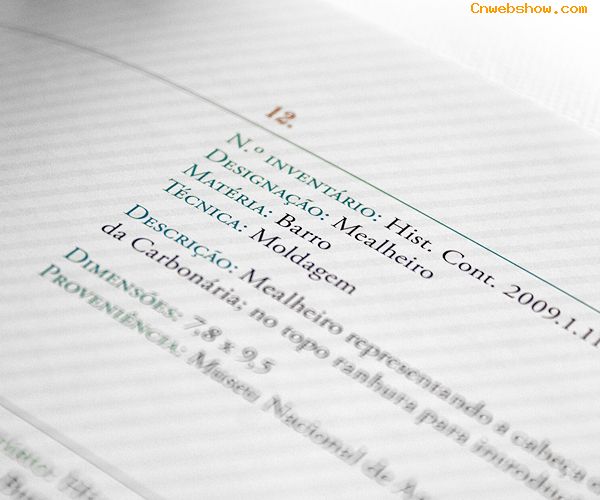 Cnwebshow.com
12.
N.º INVENTÁRIO: Hist. Cont. 2009.1.11
DESIGNAÇÃO: Mealheiro
MATÉRIA: Barro
TÉCNICA: Moldagem
DESCRIÇÃO: Mealheiro representando a cabeça
da Carbonária; no topo ranhura para
DIMENSÕES: 7,8 x 9,5
PROVENIÊNCIA: Museu Nacional de